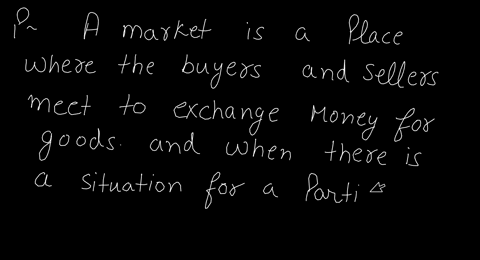 A market is a Place
where the buyers and sellers
meet to exchange Money for
goods. and when there is
a situation for a Parti